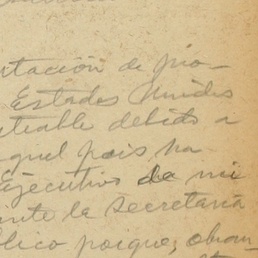 rtación de pro-
Estados Unidos
uteable debido a
quel pais ha
Ejecutivo de mi
ante la Secretaria
blico porque, obran-